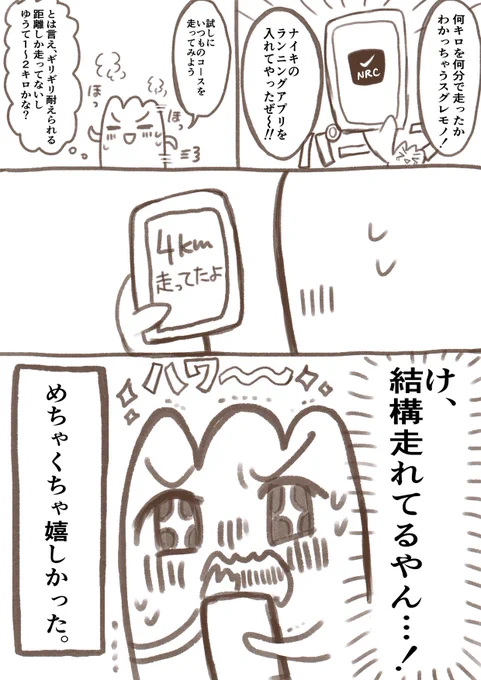 何キロを何分で走ったか
わかっちゃうスグレモノ！
NRC
ナイキの
ランニングアプリを
入れてやったぜ〜!!
試しに
いつものコースを
走ってみよう
ほっ
ほっ
とは言え、ギリギリ耐えられる
距離しか走ってないし
ゆうて1〜2キロかな？
4km
走ってたよ
け、
結構走れてるやん…！
ハワ〜〜
めちゃくちゃ嬉しかった。